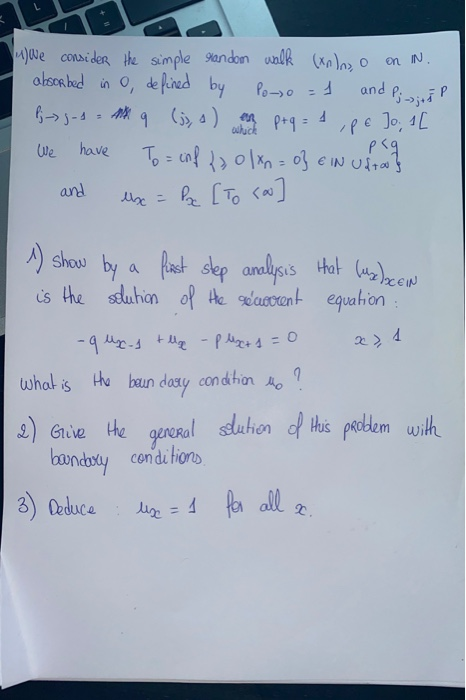 1) We consider the simple random walk (Xn)n≥0 on IN.
absorbed in 0, defined by P0→0 = 1 and Pj→j+1 = P
Pj→j-1 = q (j≥1) in which p+q = 1, p ∈ ]0, 1[
p<q
We have T0 = inf {≥0 | Xn = 0} ∈ IN ∪ {+∞}
and ux = Px [T0 <∞]
1) Show by a first step analysis that (ux)x∈IN
is the solution of the recurrent equation :
-q ux-1 + ux - p ux+1 = 0 x ≥ 1
What is the boundary condition u0 ?
2) Give the general solution of this problem with
boundary conditions.
3) Deduce : ux = 1 for all x.